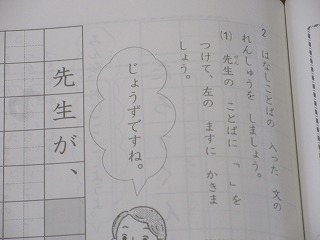 2 はなしことばの 入った 文の
れんしゅうを しましょう。
(1) 先生の ことばに 「 」を
つけて、左の ますに かきま
しょう。
じょうずですね。
先生が、